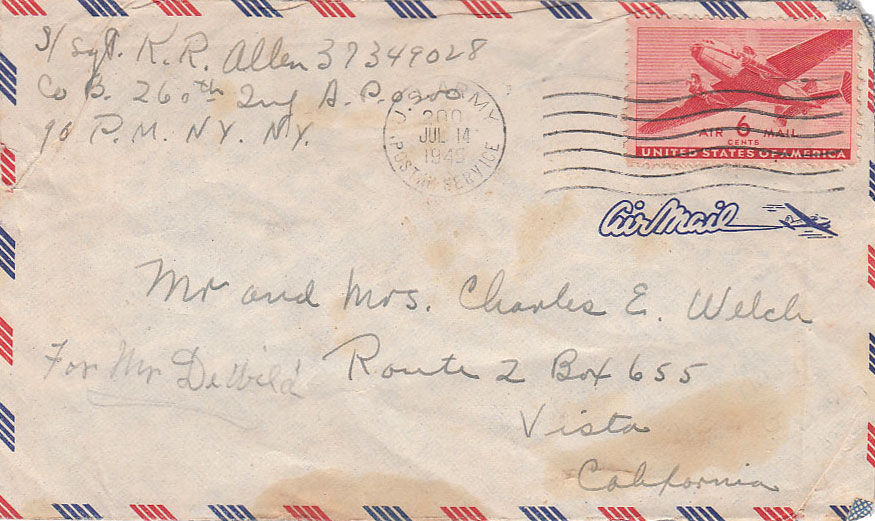 S/Sgt. K. R. Allen 37349028
Co B. 260th Inf A. P. O 200
% P. M. N.Y. N.Y.
U. S. ARMY
200
JUL 14
1945
POSTAL SERVICE
AIR 6 MAIL
CENTS
UNITED STATES OF AMERICA
Air Mail
Mr and Mrs. Charles E. Welch
For Mr DeWild
Route 2 Box 655
Vista
California